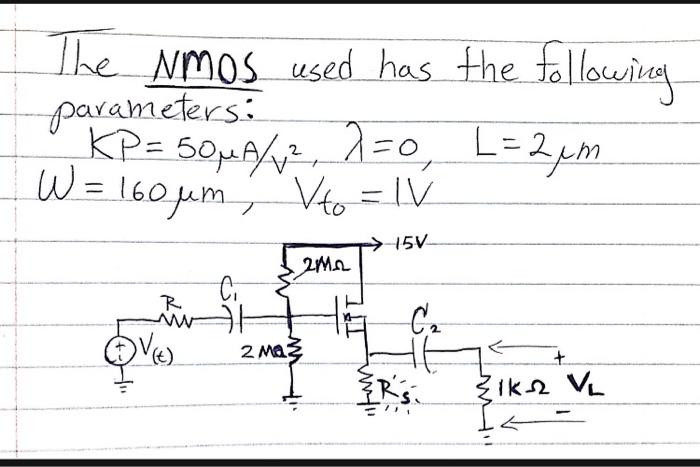 The NMOS used has the following
parameters:
KP = 50μA/V², λ=0, L=2μm
W = 160μm, Vto = 1V
15V
2MΩ
C₁
R
V(t)
2MΩ
C₂
Rs
1KΩ
+
VL
-